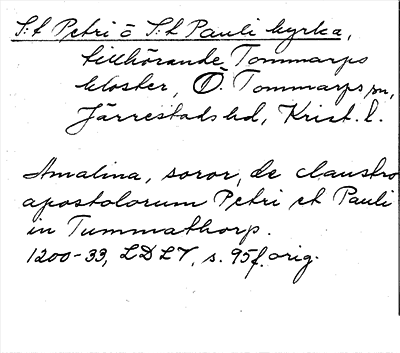 S:t Petri o S:t Pauli kyrka,
tillhörande Tommarps
kloster, Ö. Tommarps sn,
Järrestads hd, Krist. l.
Amalina, soror, de claustro
apostolorum Petri et Pauli
in Tummathorp.
1200-33, LDLV, s. 95f. orig.